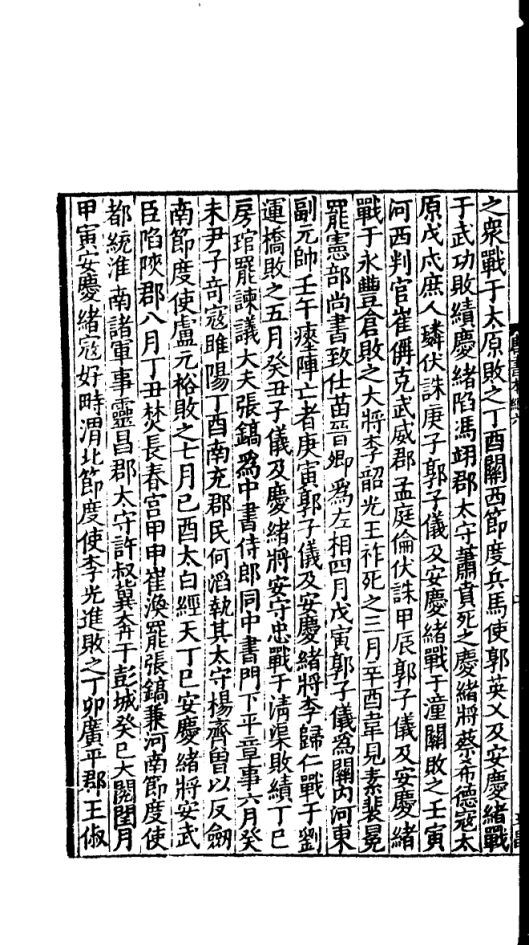 之衆戰于太原敗之丁酉關西節度兵馬使郭英乂及安慶緒戰
于武功敗績慶緒陷馮翊郡太守蕭賁死之慶緒將蔡希德寇太
原戊戌庶人璘伏誅庚子郭子儀及安慶緒戰于潼關敗之壬寅
河西判官崔偁克武威郡孟庭倫伏誅甲辰郭子儀及安慶緒
戰于永豐倉敗之大將李韶光王祚死之三月辛酉韋見素裴冕
罷憲部尚書致仕苗晉卿爲左相四月戊寅郭子儀爲關內河東
副元帥壬午瘞陣亡者庚寅郭子儀及安慶緒將李歸仁戰于劉
運橋敗之五月癸丑子儀及慶緒將安守忠戰于清渠敗績丁巳
房琯罷諫議大夫張鎬爲中書侍郎同中書門下平章事六月癸
未尹子竒寇睢陽丁酉南充郡民何滔執其太守楊齊曾以反劒
南節度使盧元裕敗之七月己酉太白經天丁巳安慶緒將安武
臣陷陝郡八月丁丑焚長春宫甲申崔渙罷張鎬兼河南節度使
都統淮南諸軍事靈昌郡太守許叔冀奔于彭城癸巳大閱閏月
甲寅安慶緒寇好畤渭北節度使李光進敗之丁卯廣平郡王俶